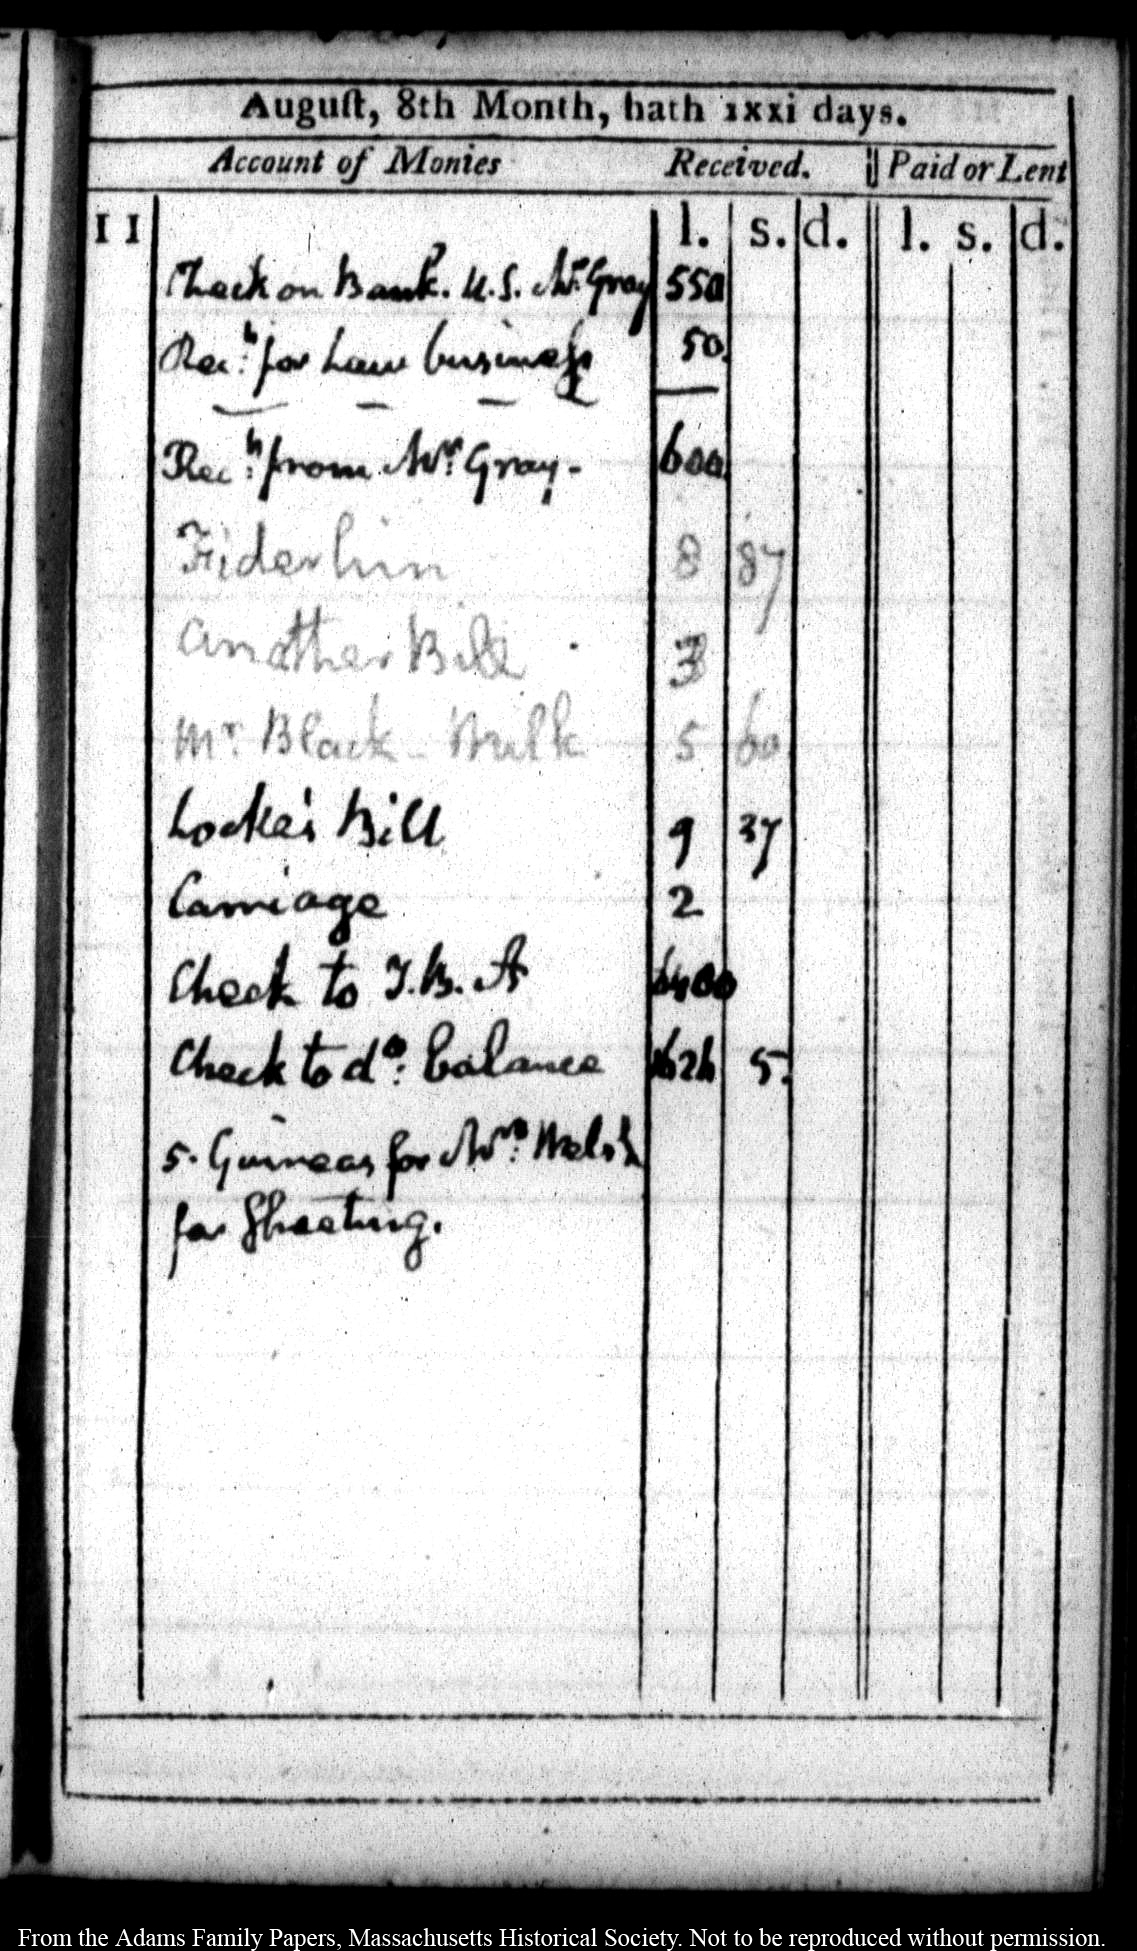 Auguſt, 8th Month, hath xxxi days.
Account of Monies Received. Paid or Lent
11 l. s. d. l. s. d.
Check on Bank. U.S. Mr. Gray 550
Rec.d for Law business 50.
Rec.d from Mr. Gray. 600
8 87
another Bill 3
Mr. Black - Milk 5 60
Locke's Bill 9 37
Carriage 2
Check to T.B.A 400
Check to do: balance 626 5.
5. Guineas for Mrs: Welsh
for Sheeting.
From the Adams Family Papers, Massachusetts Historical Society. Not to be reproduced without permission.